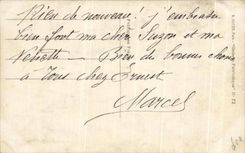 Rien de nouveau! j'embrasse
bien fort ma chère Suzon et ma
Nénette — Bien de bonnes choses
à tous chez Ernest
Marcel